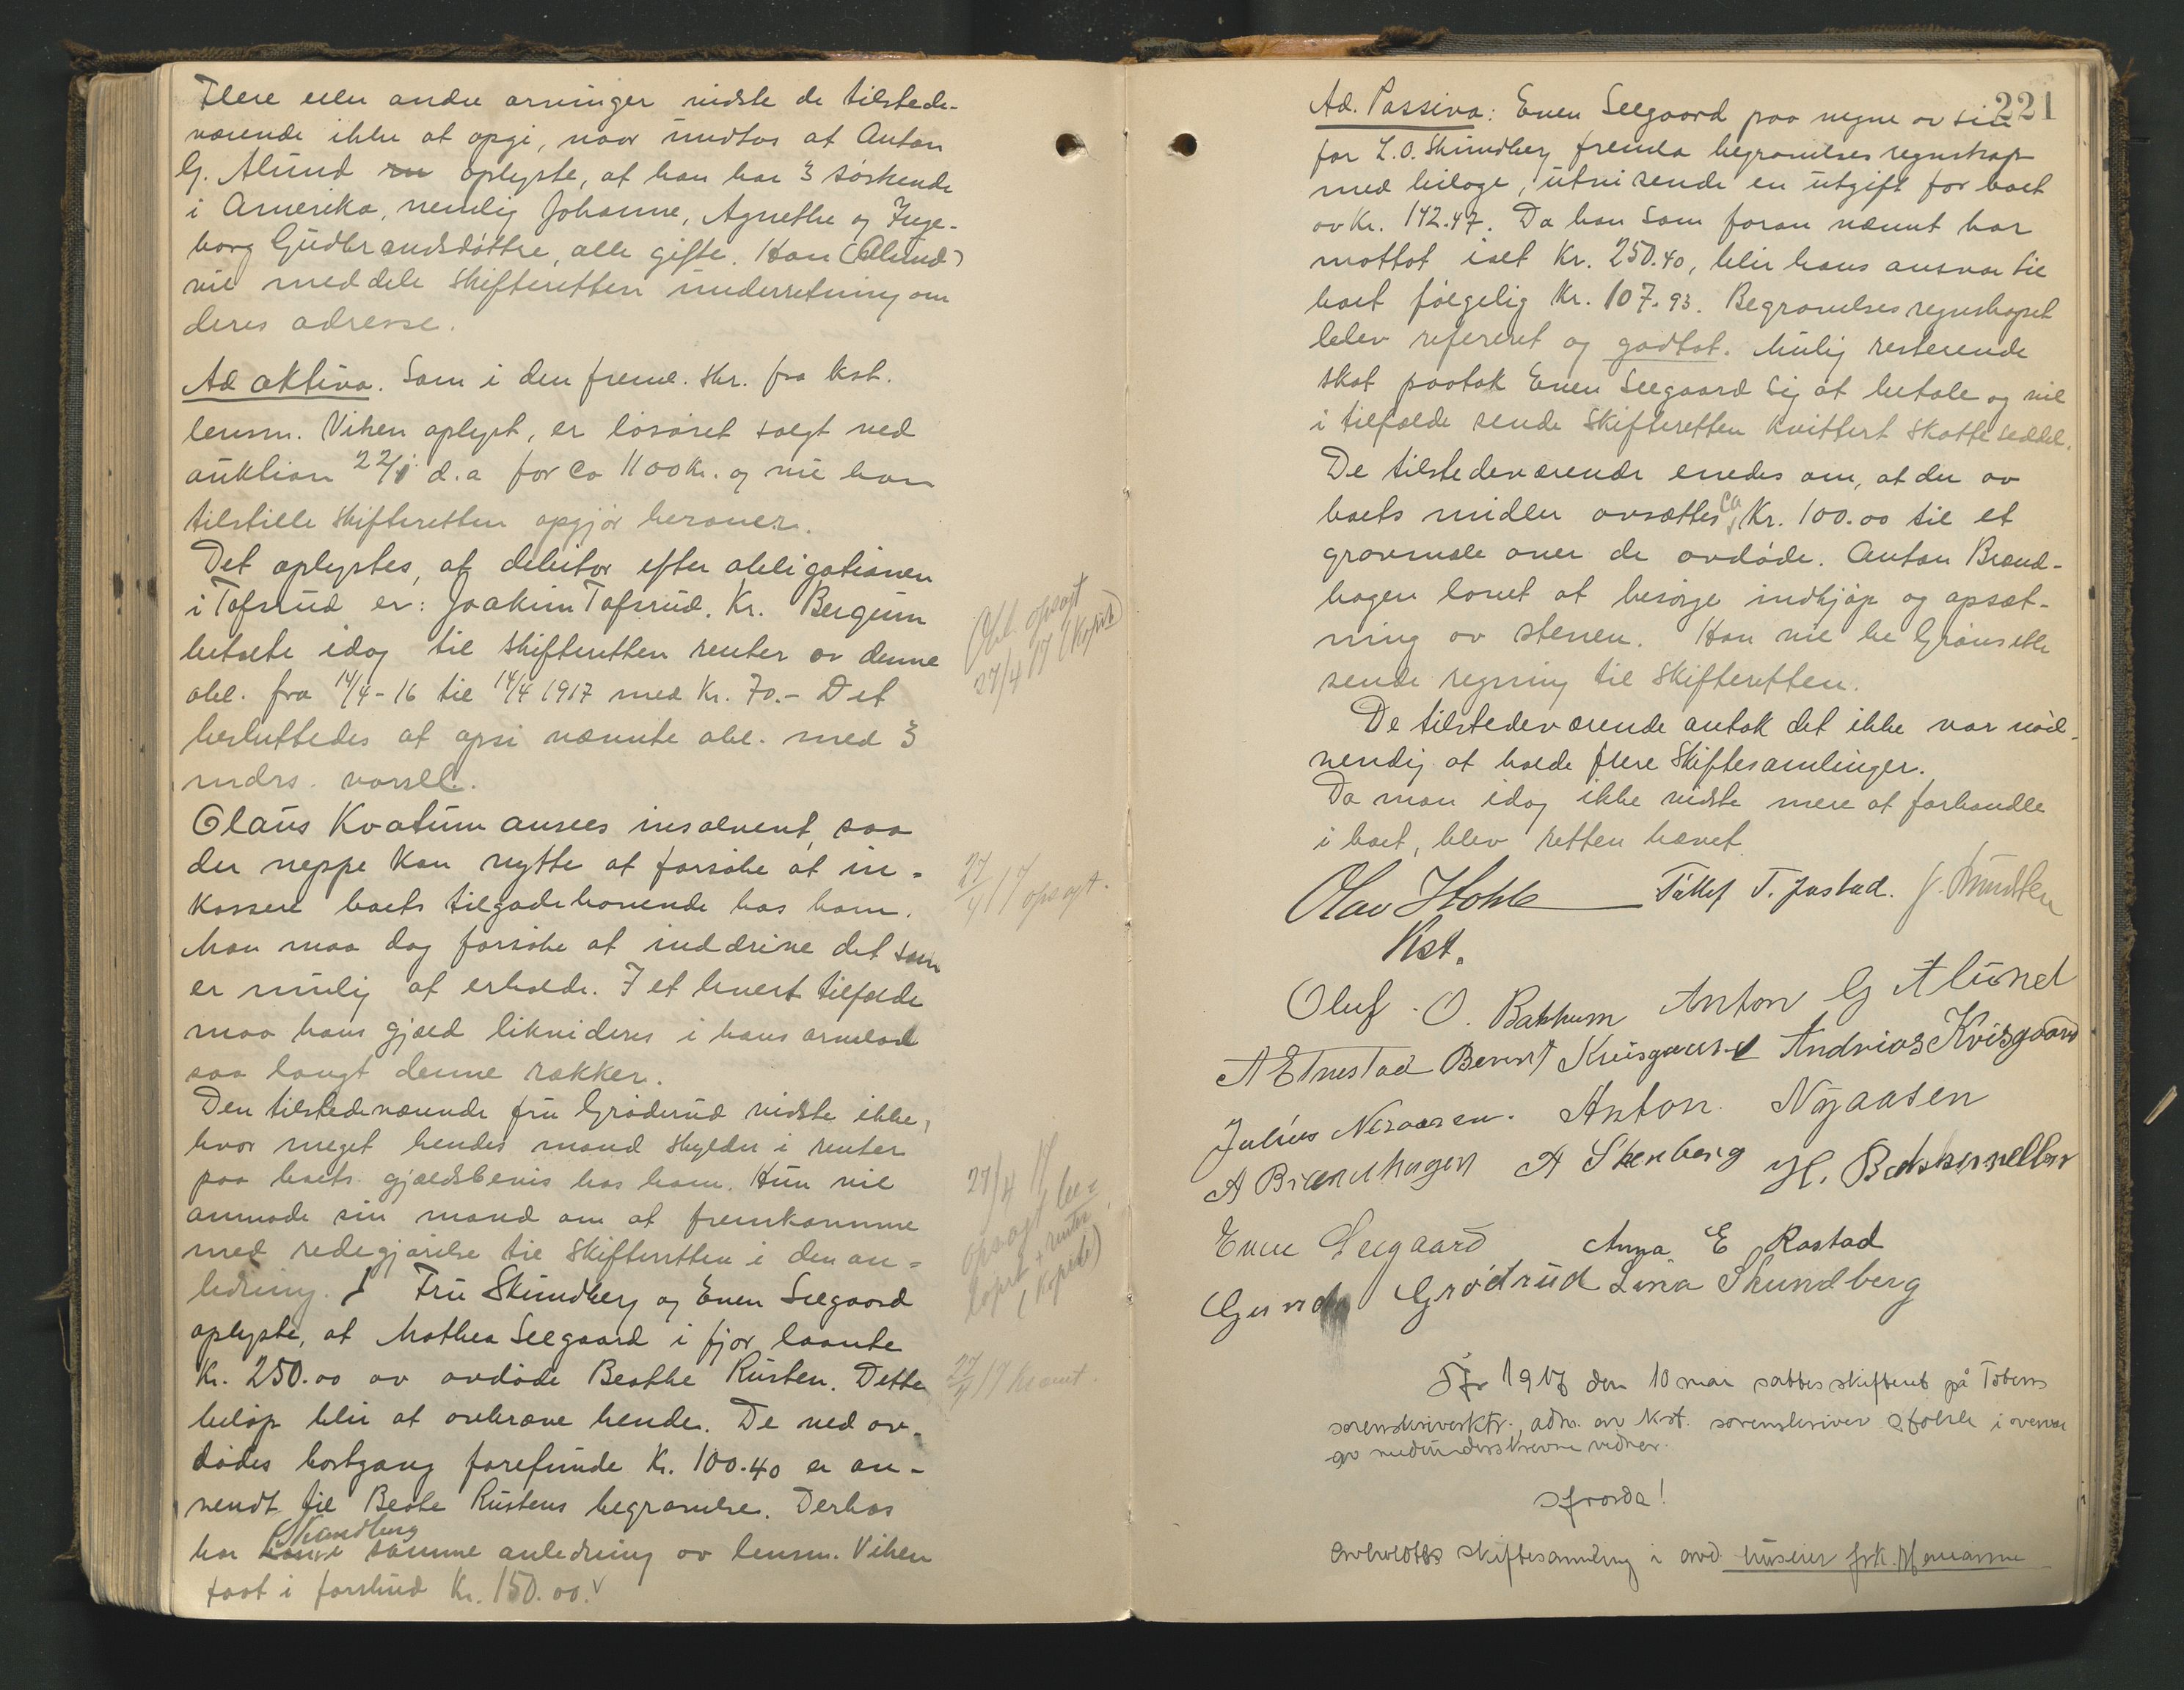 Flere eller andre arvinger vidste de tilstede-
værende ikke at opgi, naar undtas at Anton
G. Alund oplyste, at han har 3 søskende
i Amerika, nemlig Johanne, Agnethe og Inge-
borg Gudbrandsdøttre, alle gifte. Han (Alund)
vil meddele skifteretten underretning om
deres adresse.
Ad aktiva. Som i den freml. skr. fra kst.
lensm. Viken oplyst, er løsøret solgt ved
auktion 22/1 d.a for ca 1100 kr. og vil han
tilstille skifteretten opgjør herover.
Det oplystes, at debitor efter obligationen
i Tofsrud er: Joakim Tofsrud. Kr. Bergum
betalte idag til skifteretten renter av denne
obl. fra 14/4-16 til 14/4 1917 med Kr. 70.- Det
besluttedes at opsi nævnte obl. med 3
mdrs. varsel.
Obl. opsagt
27/4 17 (Kopist)
Olaus Kvatum ansees insolvent, saa
der neppe kan nytte at forsøke at in-
kassere boets tilgodehavende hos ham.
Man maa dog forsøke at inddrive det som
er mulig at erholde. I et hvert tilfælde
maa hans gjæld likvideres i hans arvelod
saa langt denne rækker.
27/4 17 opsagt.
Den tilstedeværende fru Grøderud vidste ikke,
hvor meget hendes mand skylder i renter
paa boets gjældsbevis hos ham. Hun vil
anmode sin mand om at fremkomme
med redegjørelse til skifteretten i den an-
ledning. Fru Skundberg og Even Seegaard
oplyste, at Mathea Seegaard i fjor laante
Kr. 250.00 av avdøde Beathe Rusten. Dette
beløp blir at avkræve hende. De ved av-
dødes bortgang forefunde Kr. 100.40 er an-
vendt til Beate Rustens begravelse. Derhos
Skundberg
har i samme anledning av lensm. Viken
faat i forskud Kr. 150.00. v
27/4 17
opsagt be-
løpet + renter
(Kopist)
27/4 17 kravt.
221
Ad. Passiva: Even Seegaard paa vegne av sin
far L.O. Skundberg fremla begravelsesregnskap
med bilage, utvisende en utgift for boet
av Kr. 142.47. Da han som foran nævnt har
mottat ialt Kr. 250.40, blir hans ansvar til
boet følgelig Kr. 107.93. Begravelsesregnskapet
blev referert og godtat. Mulig resterende
skat paatok Even Seegaard sig at betale og vil
i tilfælde sende skifteretten kvittert skatteseddel.
De tilstedeværende enedes om, at der av
boets midler avsættes ca Kr. 100.00 til et
gravmæle over de avdøde. Anton Brænd-
hagen lovet at besørge indkjøp og opsæt-
ning av stenen. Han vil
sende regning til skifteretten.
De tilstedeværende antok det ikke var nød-
vendig at holde flere skiftesamlinger.
Da man idag ikke vidste mere at forhandle
i boet, blev retten hævet.
Olav Stokke Tollef T. Jastad.
Kst.
Oluf O. Bakkum Anton G Alund
A Etnestad Bernt Kvisgaard Andrias Kvisgaard
Julius Nøraasen. Anton Nøraasen
A Brændhagen A Skenberg H.
Even Seegaard Anna E Rastad
Gunda Grødrud Lina Skundberg
År 1917 den 10 mai sattes skifteret på Toten
sorenskriverktr., adm. av kst. sorenskriver Stokke i overvær
av medunderskrevne vidner.
Hvorda!
Avholdtes skiftesamling i avd. huseier frk. Marianne